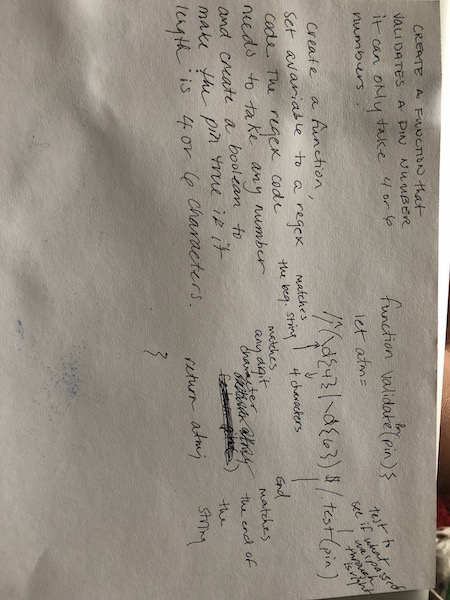 CREATE A FUNCTION that
VALIDATES A PIN NUMBER
it can only take 4 or 6
numbers.
create a function,
set a variable to a regex
code The regex code
needs to take any number
and create a boolean to
make the pin true if it
length is 4 or 6 characters.
function validate(pin) {
let atm =
/^(\d{4}|\d{6})$/.test(pin)
return atm;
}
matches
the beg. string
4 characters
matches
any digit
character
End
matches
the end of
the
string
test to
see if what
was passed
through
is right